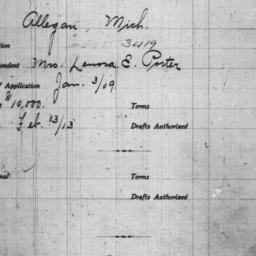 Allegan, Mich.
3419
Mrs. Lenora E. Porter
Application Jan. 3/09
$10,000. Terms
Feb. 13/13 Drafts Authorized
Terms
Drafts Authorized